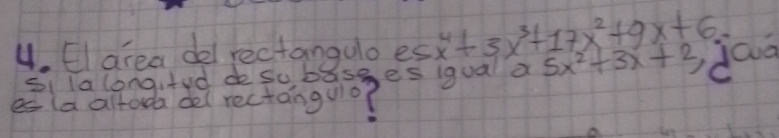 4. El área del rectangulo es x⁴+3x³+17x²+9x+6.
si la longitud de su base es igual a 5x²+3x+2, ¿cuá
es la altoda del rectángulo?